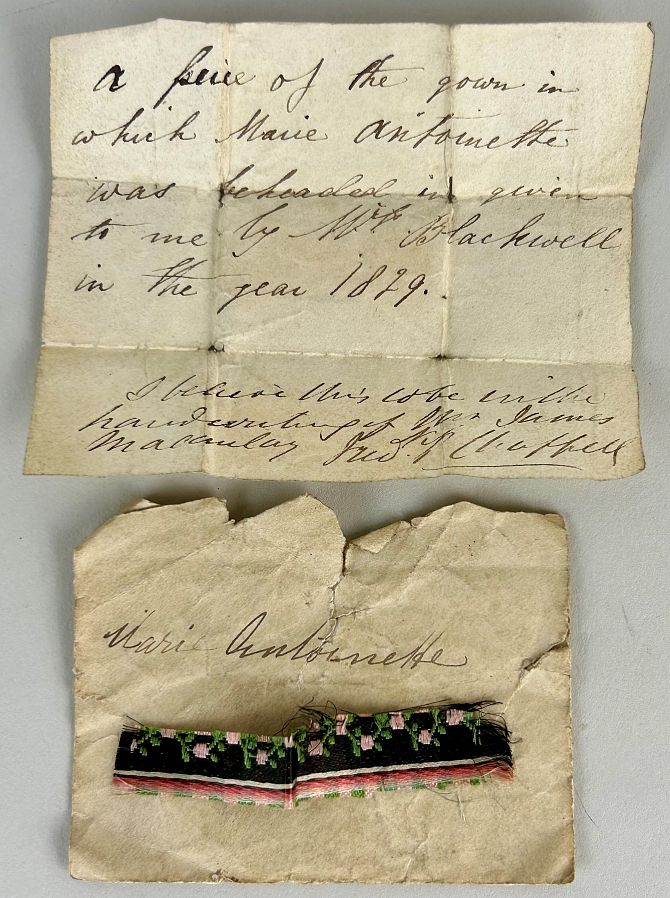 a piece of the gown in
which Marie Antoinette
was beheaded in given
to me by Blackwell
in the year 1829.
I believe this to be in the
handwriting of James
Macaulay Chappell
Marie Antoinette